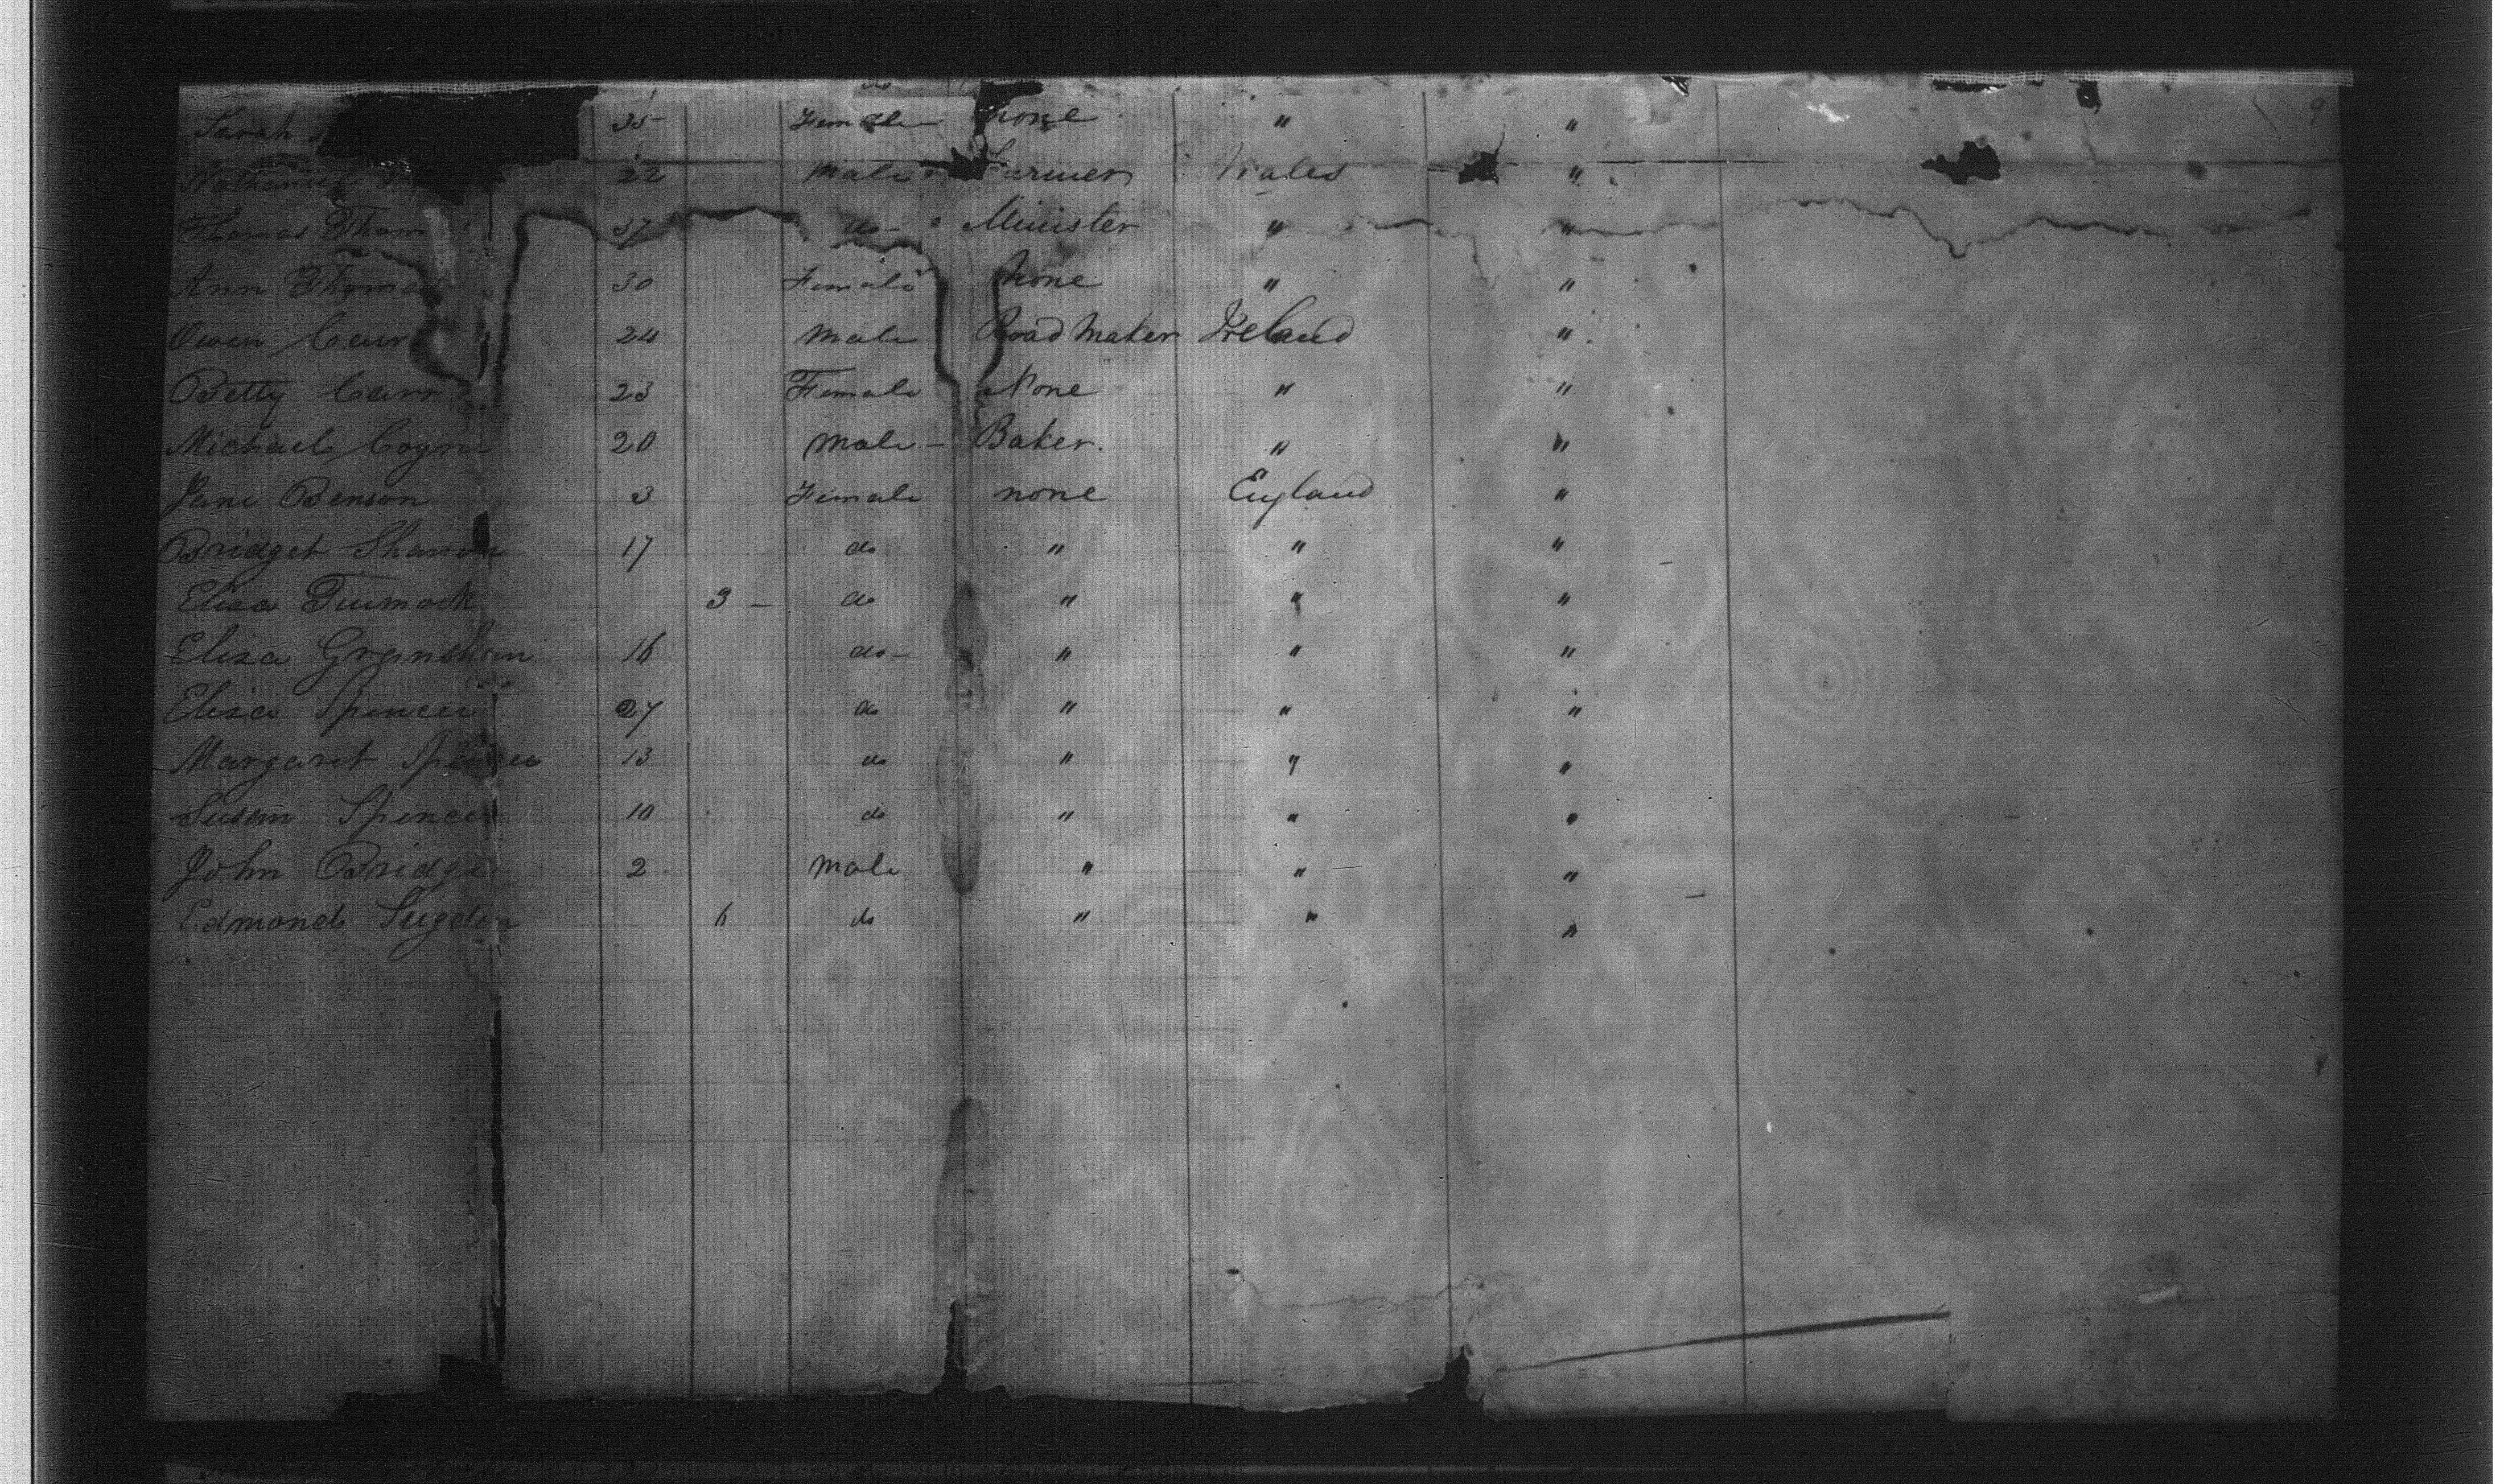 9
Sarah 35 Female none " "
Nathaniel 22 Male Farmer Wales "
Thomas Thom 37 do - Minister " "
Ann Thomas 30 Female None " "
Owen Carr 24 Male Road Maker Ireland "
Betty Carr 23 Female None " "
Michael Coyne 20 Male - Baker. " "
Jane Benson 3 Female none England "
Bridget 17 do " " "
Elisa 3 - do " " "
Elisa 16 do - " " "
Elisa Spencer 27 do " " "
Margaret Spencer 13 do " " "
Susan Spencer 10 do " " "
John Bridge 2 Male " " "
Edmond Sugden 6 do " " "